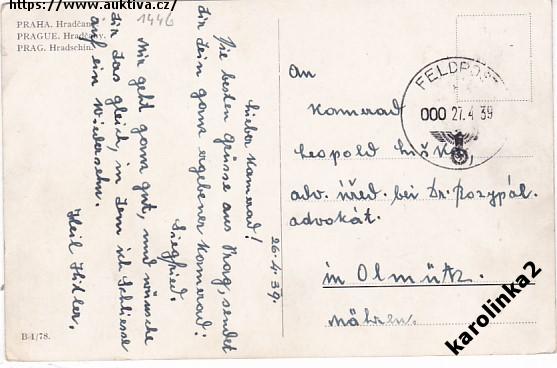 https://www.auktiva.cz/
1446
PRAHA. Hradčany.
PRAGUE. Hradčany.
PRAG. Hradschin.
26.4.39.
Lieber Kamerad!
Die besten Grüsse aus Prag, sendet
dir dein ganz ergebener Kamerad:
Siegfried.
Mir geht ganz gut, und wünsche
dir das gleich, in dem ich Schliesse
auf ein Wiedersehn.
Heil Hitler.
B-1/78.
FELDPOST
000 27.4.39
An
Kamerad
Leopold
adv. úřed. bei Dr. Pospyál.
advokát.
in Olmütz.
Mähren.
karolinka2